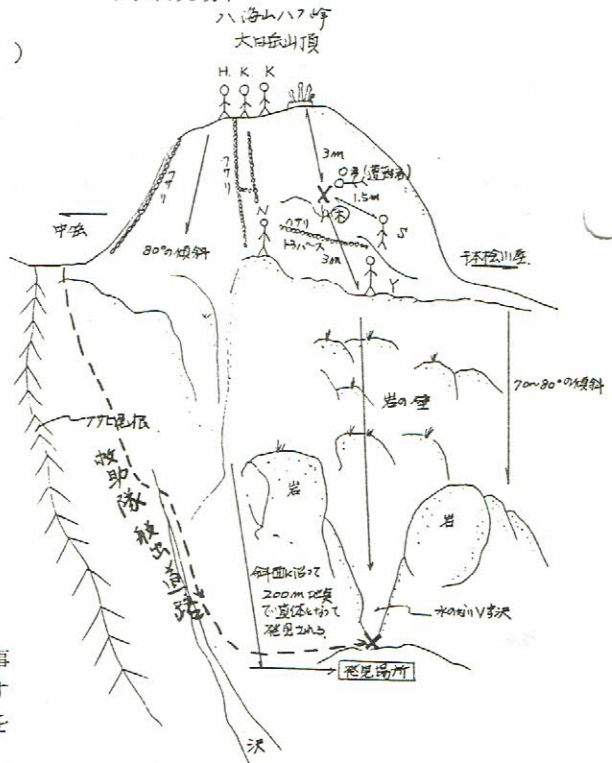 八海山八ツ峰
大日岳山頂
)
H. K. K
3m
1.5m
クサリ
クサリ
N
クサリ
トラバース
3m
S
Y
中岳
80°の傾斜
千本桧小屋
70〜80°の傾斜
岩の壁
尾根
救助隊 道路
岩
岩
斜面に沿って
200m地点
で 体となって
発見される
水のないV字沢
発見場所
沢
事
す
を